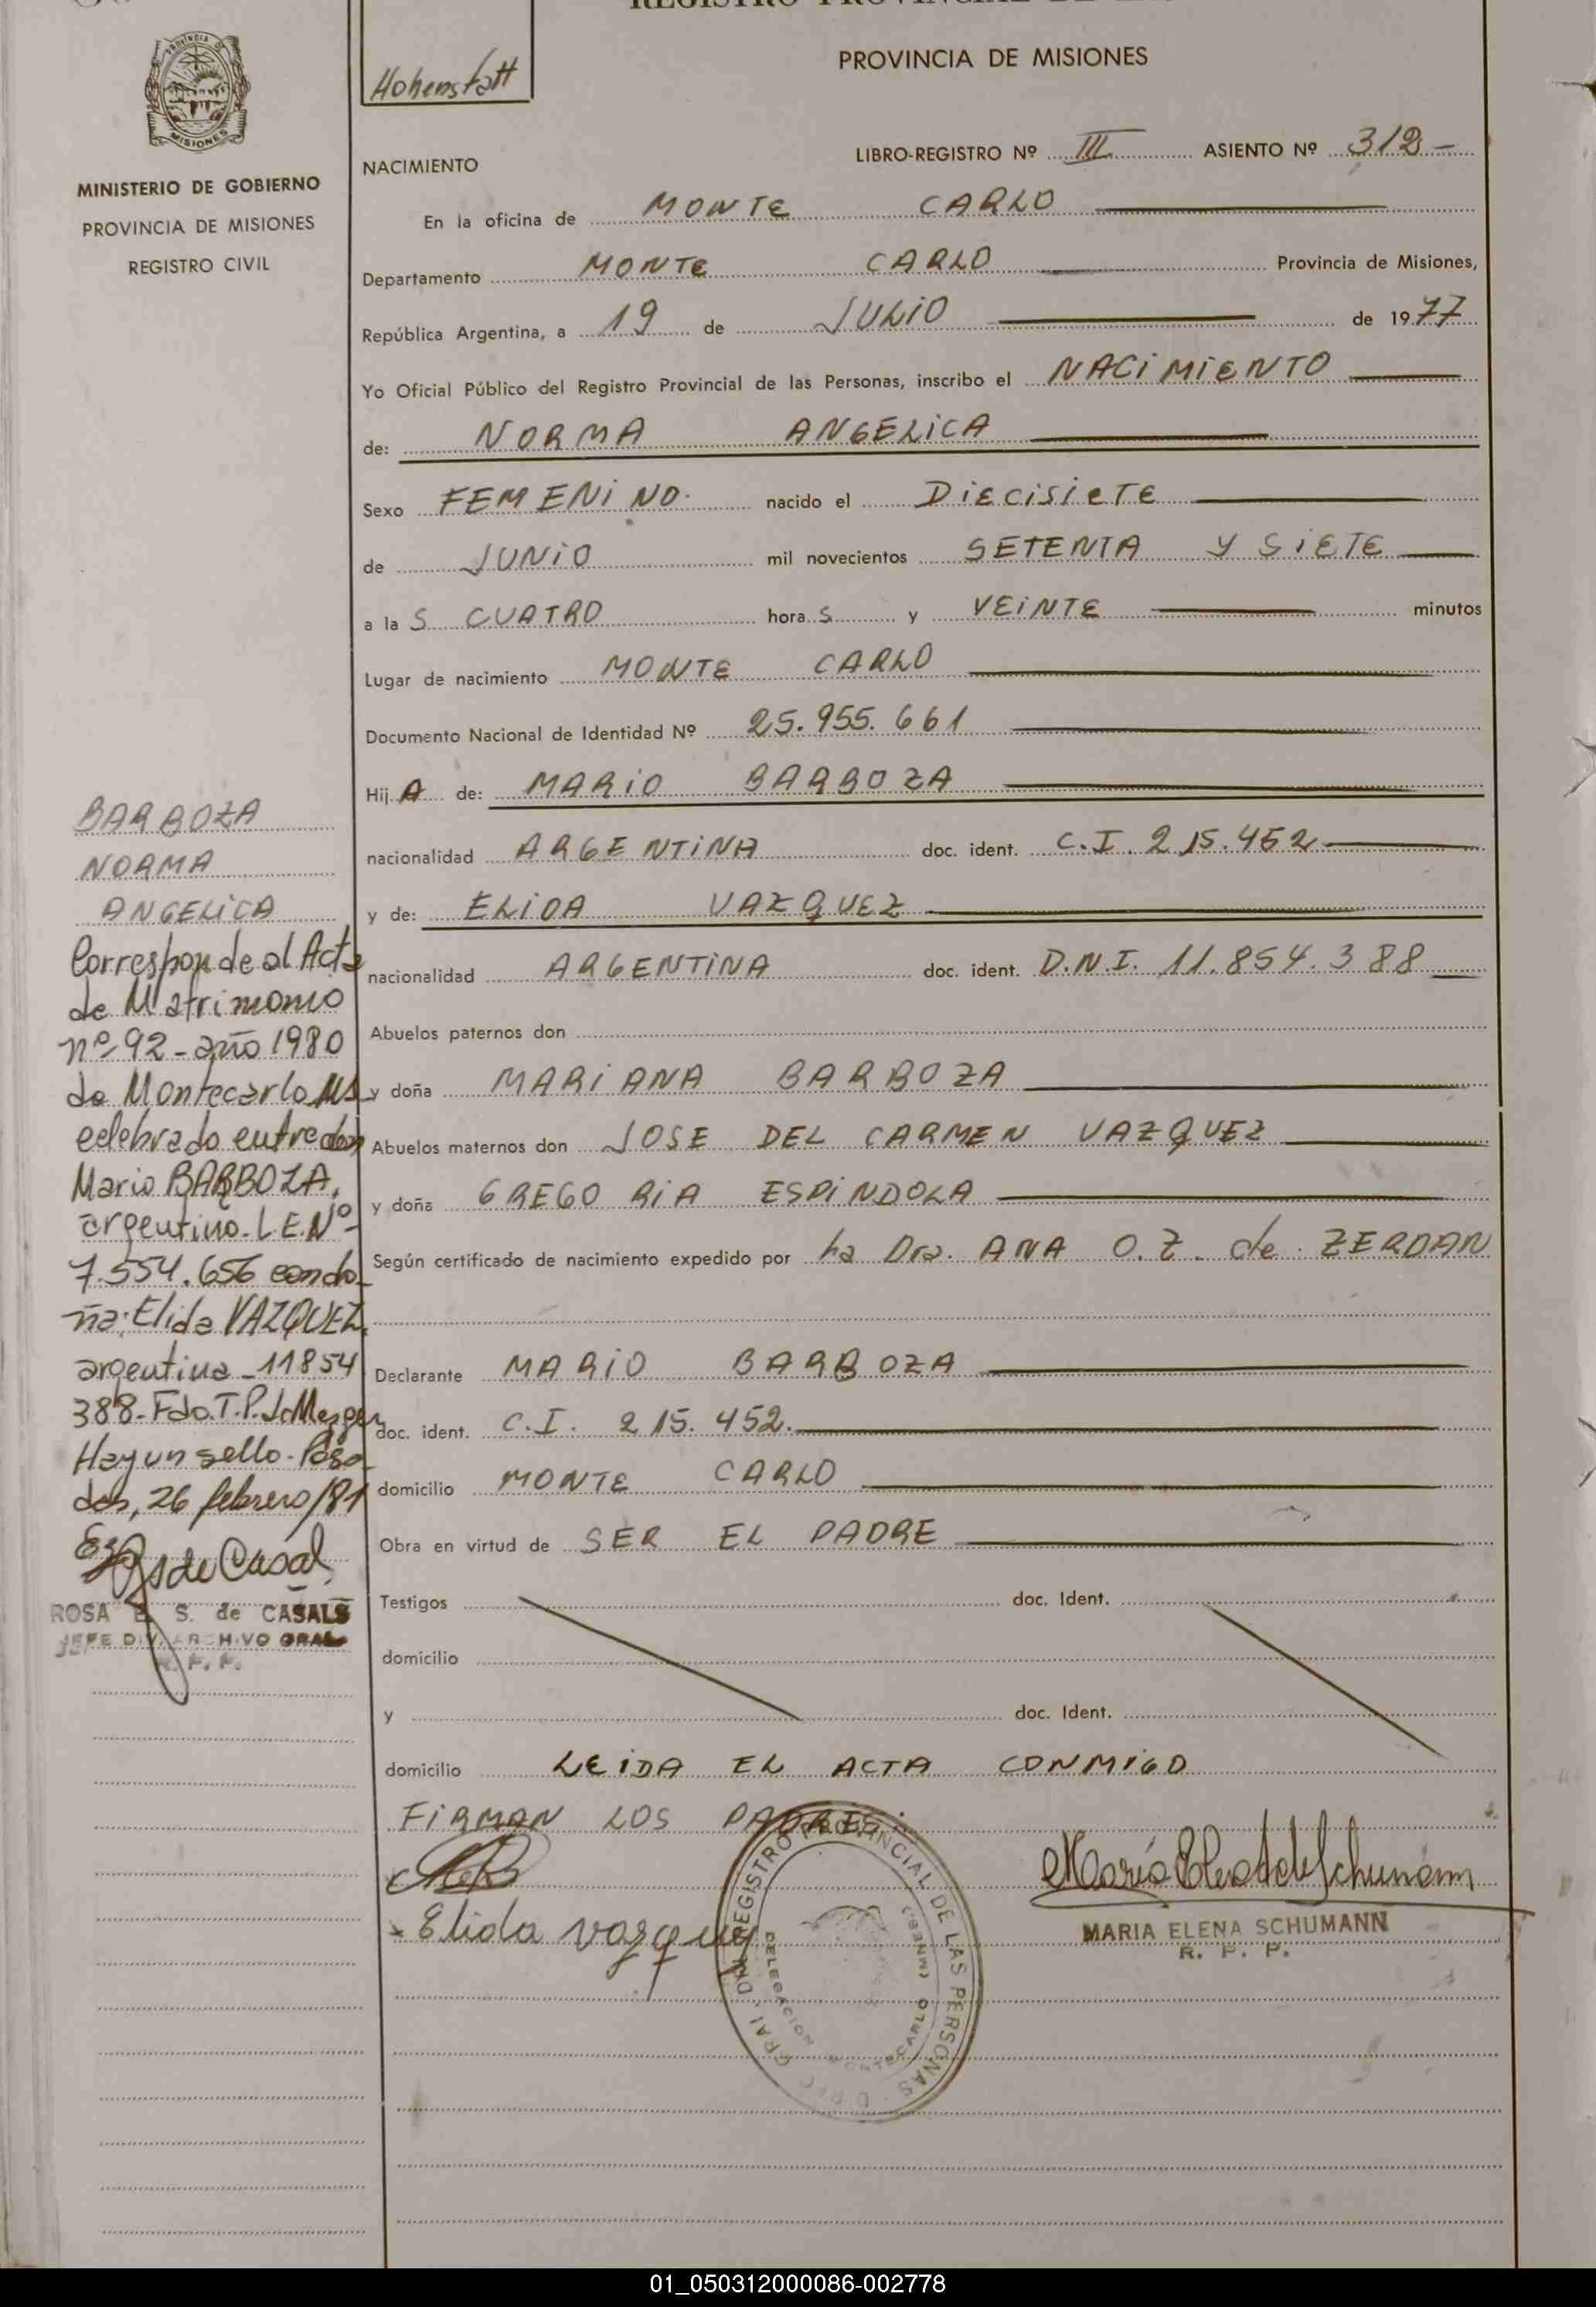 PROVINCIA DE MISIONES
Hohenstatt
MISIONES
MINISTERIO DE GOBIERNO
PROVINCIA DE MISIONES
REGISTRO CIVIL
NACIMIENTO
LIBRO-REGISTRO Nº III ASIENTO Nº 312-
En la oficina de MONTE CARLO
Departamento MONTE CARLO Provincia de Misiones,
República Argentina, a 19 de JULIO de 1977
Yo Oficial Público del Registro Provincial de las Personas, inscribo el NACIMIENTO
de: NORMA ANGELICA
Sexo FEMENINO. nacido el DIECISIETE
de JUNIO mil novecientos SETENTA Y SIETE
a la S CUATRO hora S y VEINTE minutos
Lugar de nacimiento MONTE CARLO
Documento Nacional de Identidad Nº 25.955.661
Hij A de: MARIO BARBOZA
nacionalidad ARGENTINA doc. ident. C.I. 215.452
y de: ELIDA VAZQUEZ
nacionalidad ARGENTINA doc. ident. D.N.I. 11.854.388
Abuelos paternos don
y doña MARIANA BARBOZA
Abuelos maternos don JOSE DEL CARMEN VAZQUEZ
y doña GREGORIA ESPINDOLA
Según certificado de nacimiento expedido por la Dra. ANA O.Z. de ZERDAN
Declarante MARIO BARBOZA
doc. ident. C.I. 215.452.
domicilio MONTE CARLO
Obra en virtud de SER EL PADRE
Testigos doc. Ident.
domicilio
y doc. Ident.
domicilio LEIDA EL ACTA CONMIGO
FIRMAN LOS PADRES.
Elida vazquez
MARIA ELENA SCHUMANN
R. P. P.
REGISTRO PROVINCIAL DE LAS PERSONAS
DELEGACION MONTECARLO (MNES.)
BARBOZA
NORMA
ANGELICA
Corresponde al Acta
de Matrimonio
nº 92-año 1980
de Montecarlo Ms
celebrado entre don
Mario BARBOZA,
argentino-L.E.Nº
7.554.656 con do-
ña: Elida VAZQUEZ,
argentina-11854
388-Fdo.T.P. Mezger
Hay un sello-Posa
das, 26 febrero/81
ROSA E. S. de CASALS
JEFE DIV. ARCHIVO GRAL
R. P. P.
01_050312000086-002778